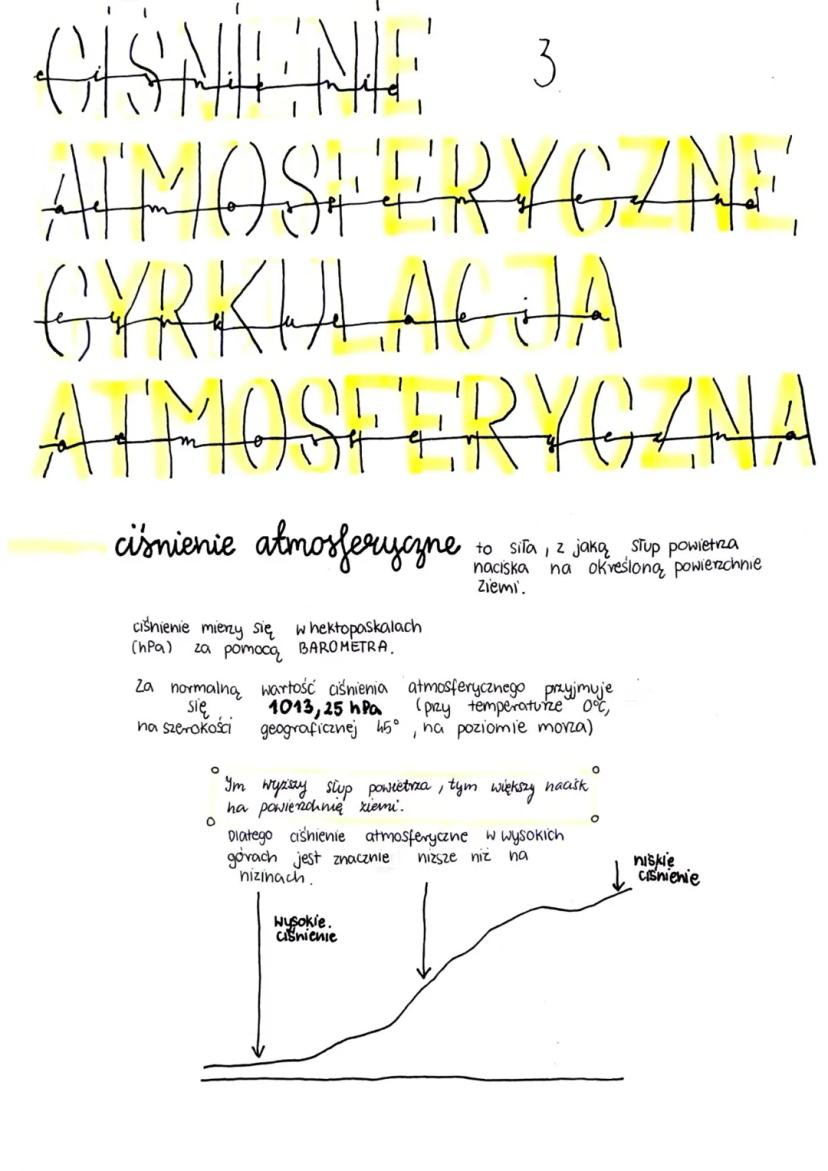 CIŚNIENIE
ciśnienie
3
ATMOSFERYCZNE
atmosferyczne
CYRKULACJA
cyrkulacja
ATMOSFERYCZNA
atmosferyczna
ciśnienie atmosferyczne to siła, z jaką słup powietrza
naciska na określoną powierzchnie
Ziemi.
ciśnienie mierzy się w hektopaskalach
(hPa) za pomocą BAROMETRA.
Za normalną wartość ciśnienia atmosferycznego przyjmuje
się 1013,25 hPa (przy temperaturze 0°C,
na szerokości geograficznej 45°, na poziomie morza)
Im wyższy słup powietrza, tym większy nacisk
na powierzchnię ziemi.
Dlatego ciśnienie atmosferyczne w wysokich
górach jest znacznie niższe niż na
nizinach.
niskie
ciśnienie
wysokie.
ciśnienie